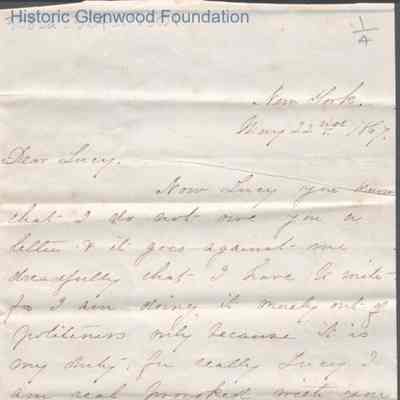 Historic Glenwood Foundation
1/4
New York.
May 22nd 1867.
Dear Lucy.
Now Lucy you know
that I do not owe you a
letter & it goes against me
dreadfully that I have to write
for I am doing it merely out of
politeness only because it is
my duty, for really Lucy I
am real provoked with you